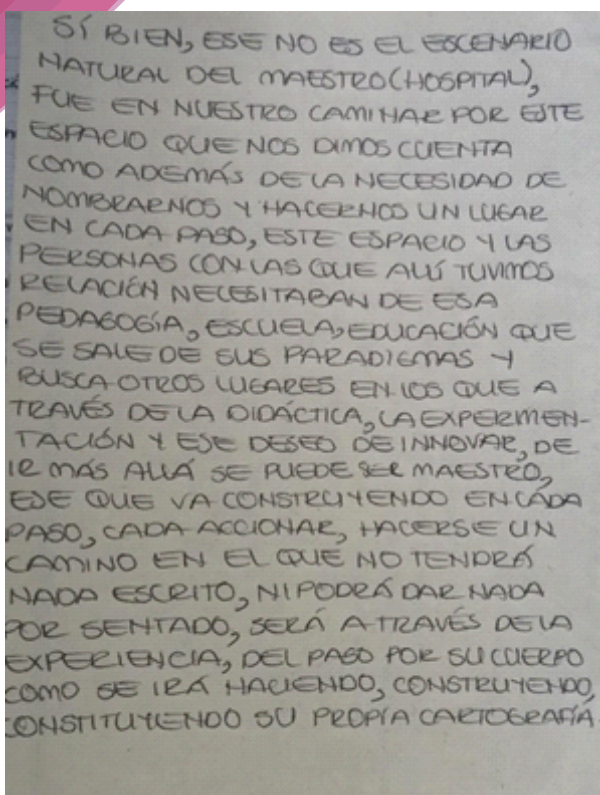 SÍ BIEN, ESE NO ES EL ESCENARIO
NATURAL DEL MAESTRO(HOSPITAL),
FUE EN NUESTRO CAMINAR POR ESTE
ESPACIO QUE NOS DIMOS CUENTA
COMO ADEMÁS DE LA NECESIDAD DE
NOMBRARNOS Y HACERNOS UN LUGAR
EN CADA PASO, ESTE ESPACIO Y LAS
PERSONAS CON LAS QUE ALLÍ TUVIMOS
RELACIÓN NECESITABAN DE ESA
PEDAGOGÍA, ESCUELA, EDUCACIÓN QUE
SE SALE DE SUS PARADIGMAS Y
BUSCA OTROS LUGARES EN LOS QUE A
TRAVÉS DE LA DIDÁCTICA, LA EXPERIMEN-
TACIÓN Y ESE DESEO DE INNOVAR, DE
IR MÁS ALLÁ SE PUEDE SER MAESTRO,
ESE QUE VA CONSTRUYENDO EN CADA
PASO, CADA ACCIONAR, HACERSE UN
CAMINO EN EL QUE NO TENDRÁ
NADA ESCRITO, NI PODRÁ DAR NADA
POR SENTADO, SERÁ A TRAVÉS DE LA
EXPERIENCIA, DEL PASO POR SU CUERPO
COMO SE IRÁ HACIENDO, CONSTRUYENDO,
CONSTITUYENDO SU PROPÍA CARTOGRAFÍA